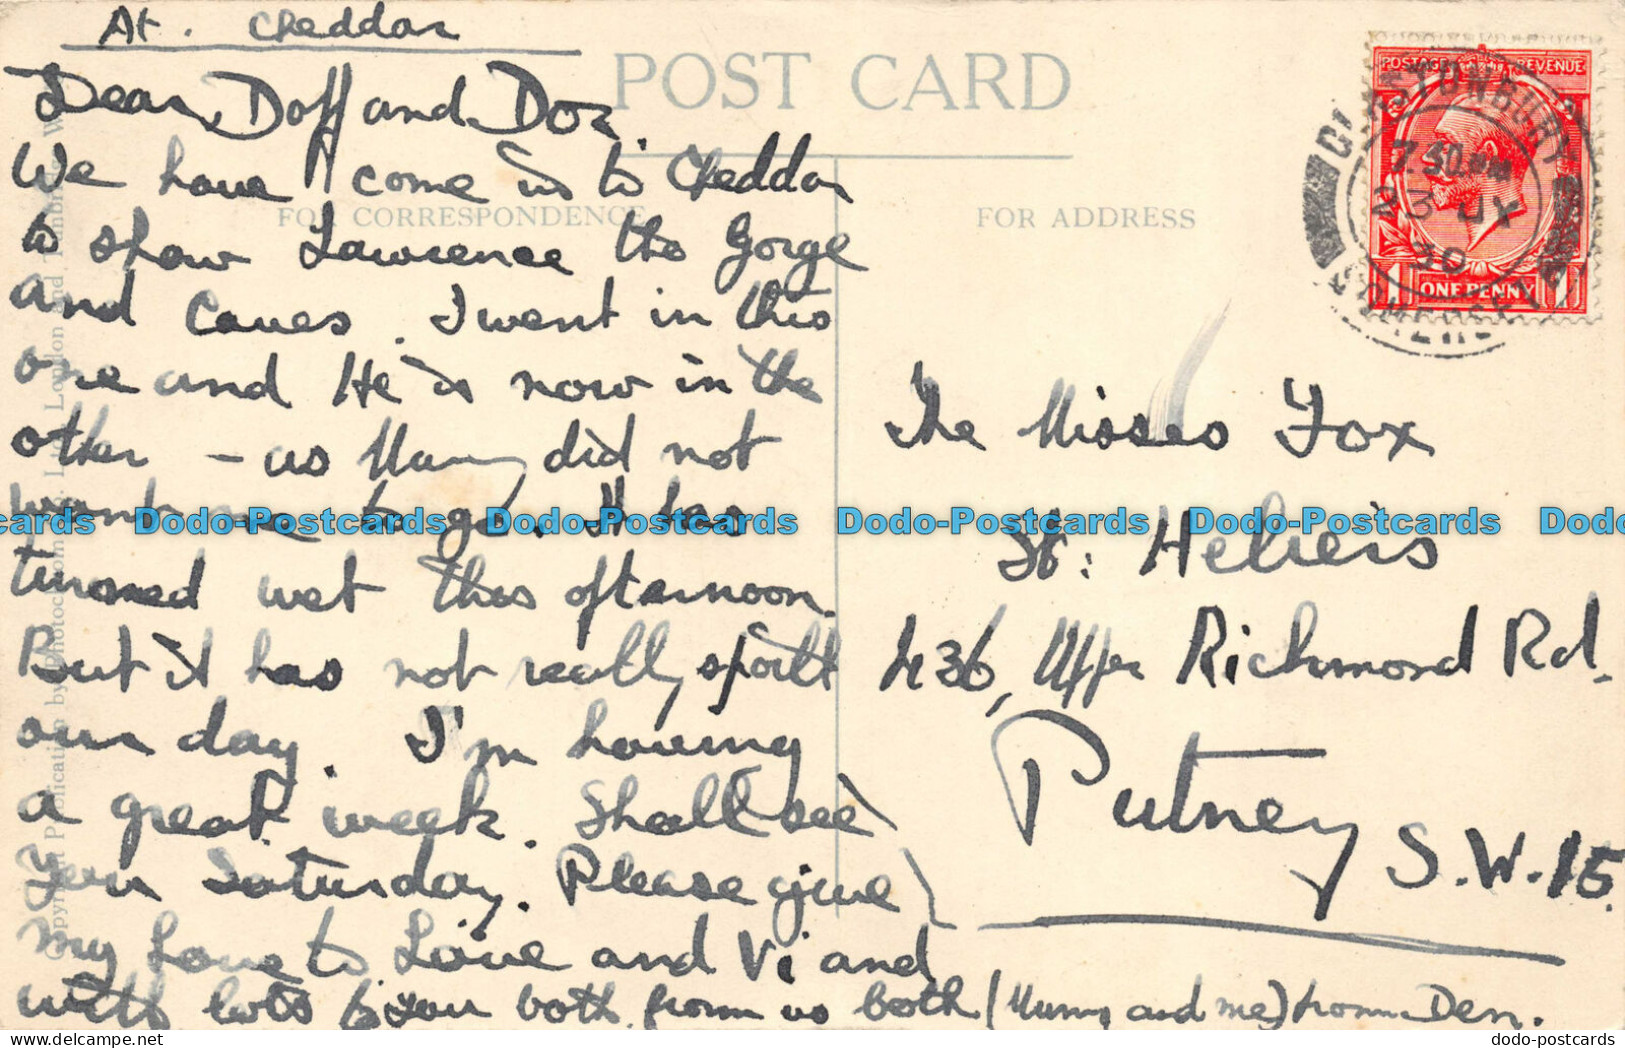 At. Cheddar
POST CARD
FOR CORRESPONDENCE
FOR ADDRESS
Dear Doff and Dor.
We have come in to Cheddar
to show Lawrence the Gorge
and Caves. I went in this
one and He is now in the
other - as Mummy did not
want me to go. It has
turned wet this afternoon.
But it has not really spoilt
our day. I'm having
a great week. Shall see
you Saturday. Please give
my love to Love and Vi and
with lots to you both from us both (Mummy and me) from Den.
The Misses Fox
St: Heliers
436, Upper Richmond Rd.
Putney
S.W.15.
POSTAGE REVENUE
ONE PENNY
GLASTONBURY
7.30 PM
23 JY
30
SOMERSET
Dodo-Postcards Dodo-Postcards Dodo-Postcards Dodo-Postcards
dodo-postcards